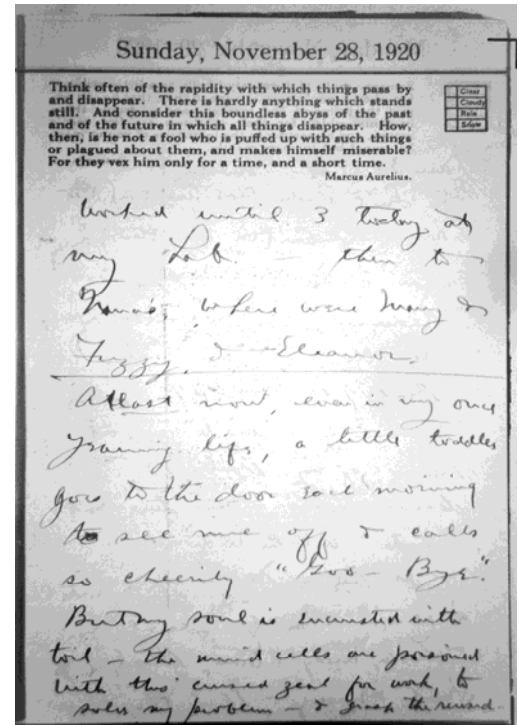 Sunday, November 28, 1920
Think often of the rapidity with which things pass by
and disappear. There is hardly anything which stands
still. And consider this boundless abyss of the past
and of the future in which all things disappear. How,
then, is he not a fool who is puffed up with such things
or plagued about them, and makes himself miserable?
For they vex him only for a time, and a short time.
Marcus Aurelius.
Clear
Cloudy
Rain
Snow
Worked until 3 today at
my Lab — then to
where were Mary &
Fuzzy, & Eleanor.
At last now, even in my once
life, a little toddler
goes to the door each morning
to see me off & calls
so cheerily "Goo - Bye."
But my soul is encrusted with
toil — the mind cells are poisoned
with this cursed zeal for work, to
solve my problem — & grasp the reward.